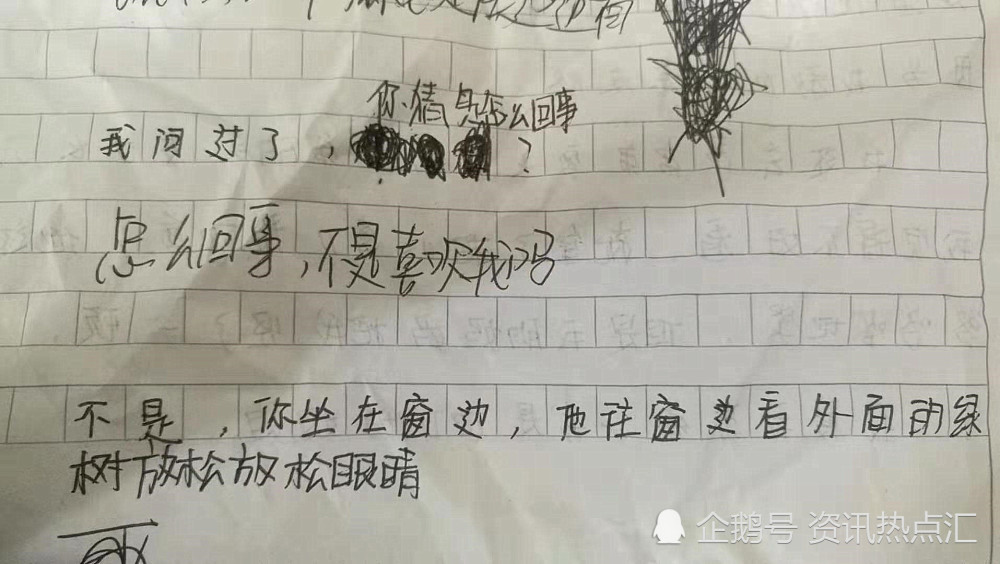 你猜是怎么回事
我问过了，?
怎么回事,不是喜欢我吗
不是，你坐在窗边，他往窗边看外面的绿
树放松放松眼睛
企鹅号 资讯热点汇